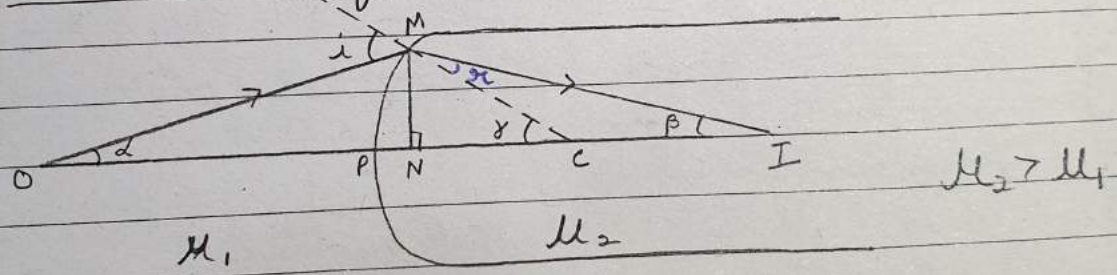 M
i r
α γ β
O P N C I
μ₂ > μ₁
μ₁ μ₂